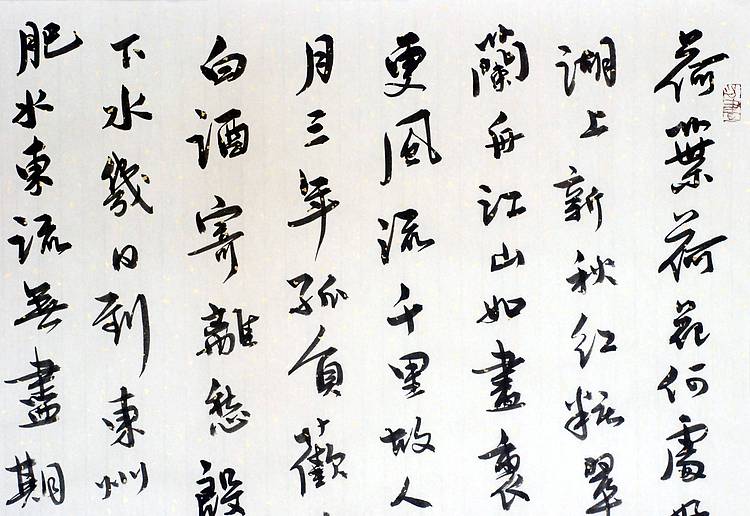 荷葉荷花何處好
湖上新秋紅粧翠
蘭舟江山如畫裏
更風流千里故人
月三年孤負歡
白酒寄離愁殷
下水幾日到東州
肥水東流無盡期